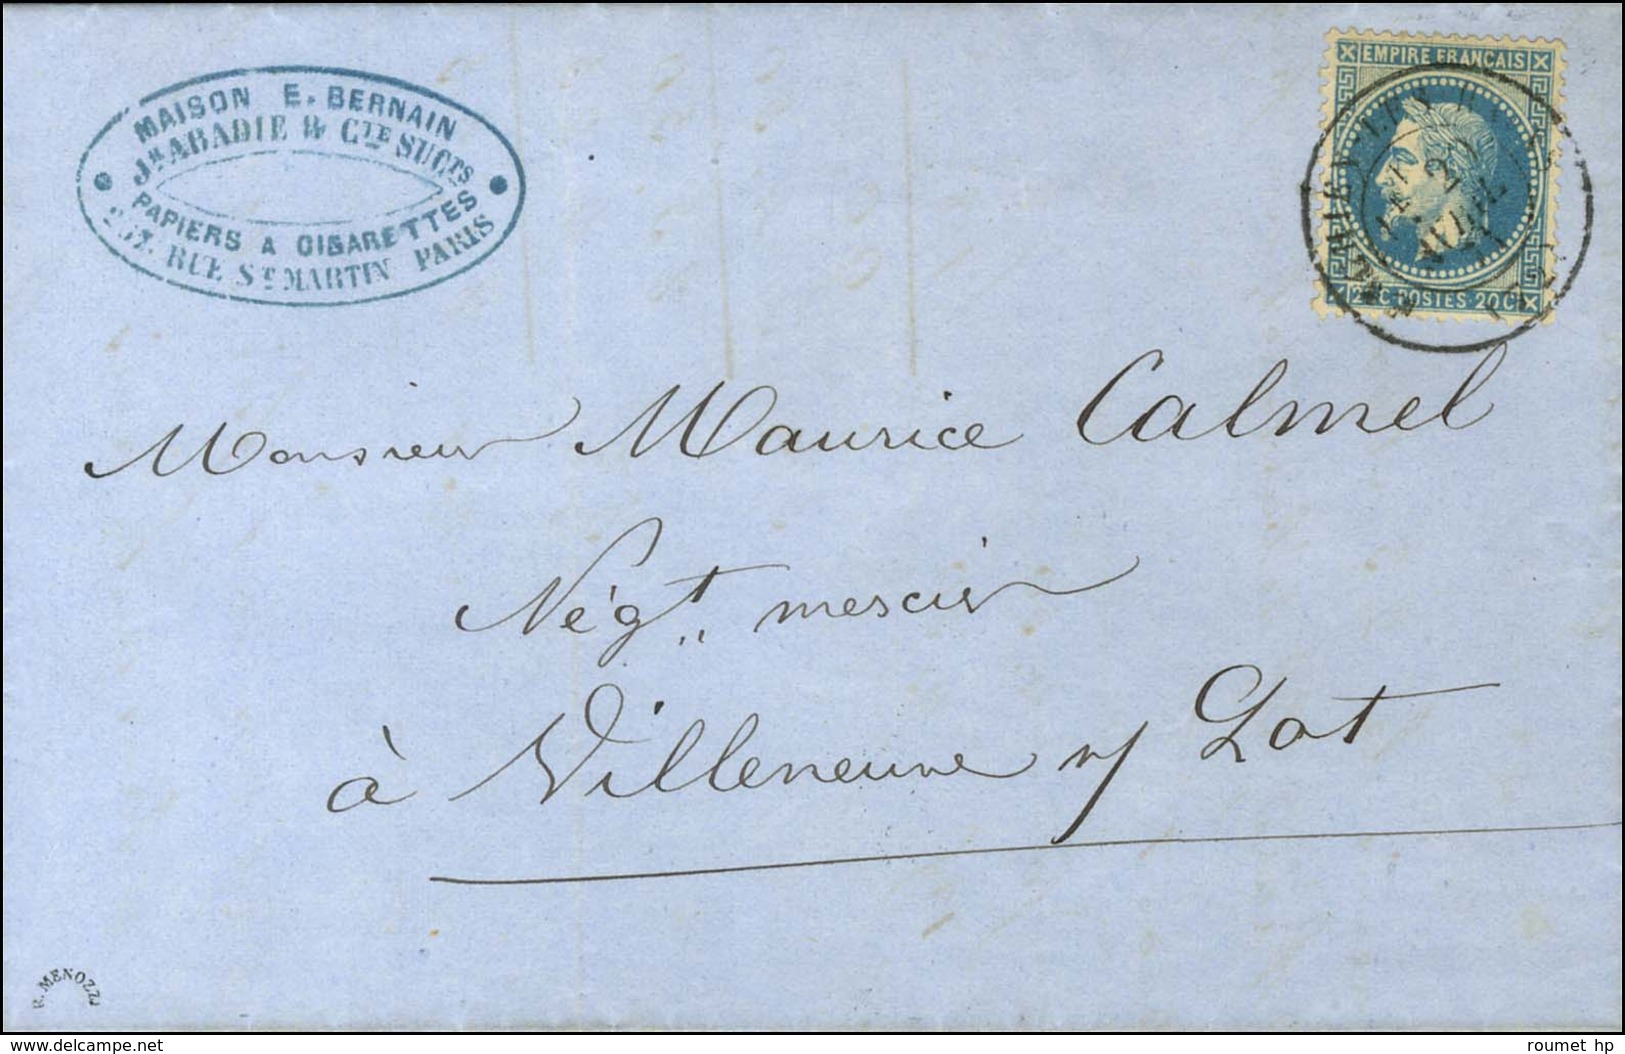 MAISON E. BERNAIN
Jh ABADIE & Cie SUCrs
PAPIERS A CIGARETTES
RUE St MARTIN PARIS
EMPIRE FRANCAIS
20 C POSTES 20 C
AVRIL
71
Monsieur Maurice Calmel
Négt mercier
à Villeneuve s/ Lot
R. MENOZZI
www.delcampe.net
roumet hp